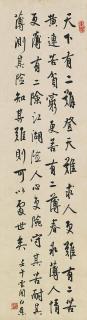 天下有二難登天難求人更難有二苦
黃連苦貧窮更苦有二薄春冰薄人情
更薄有二險江湖險人心更險守其苦耐其
薄測其險知其難則可以處世矣壬午雲間白蕉